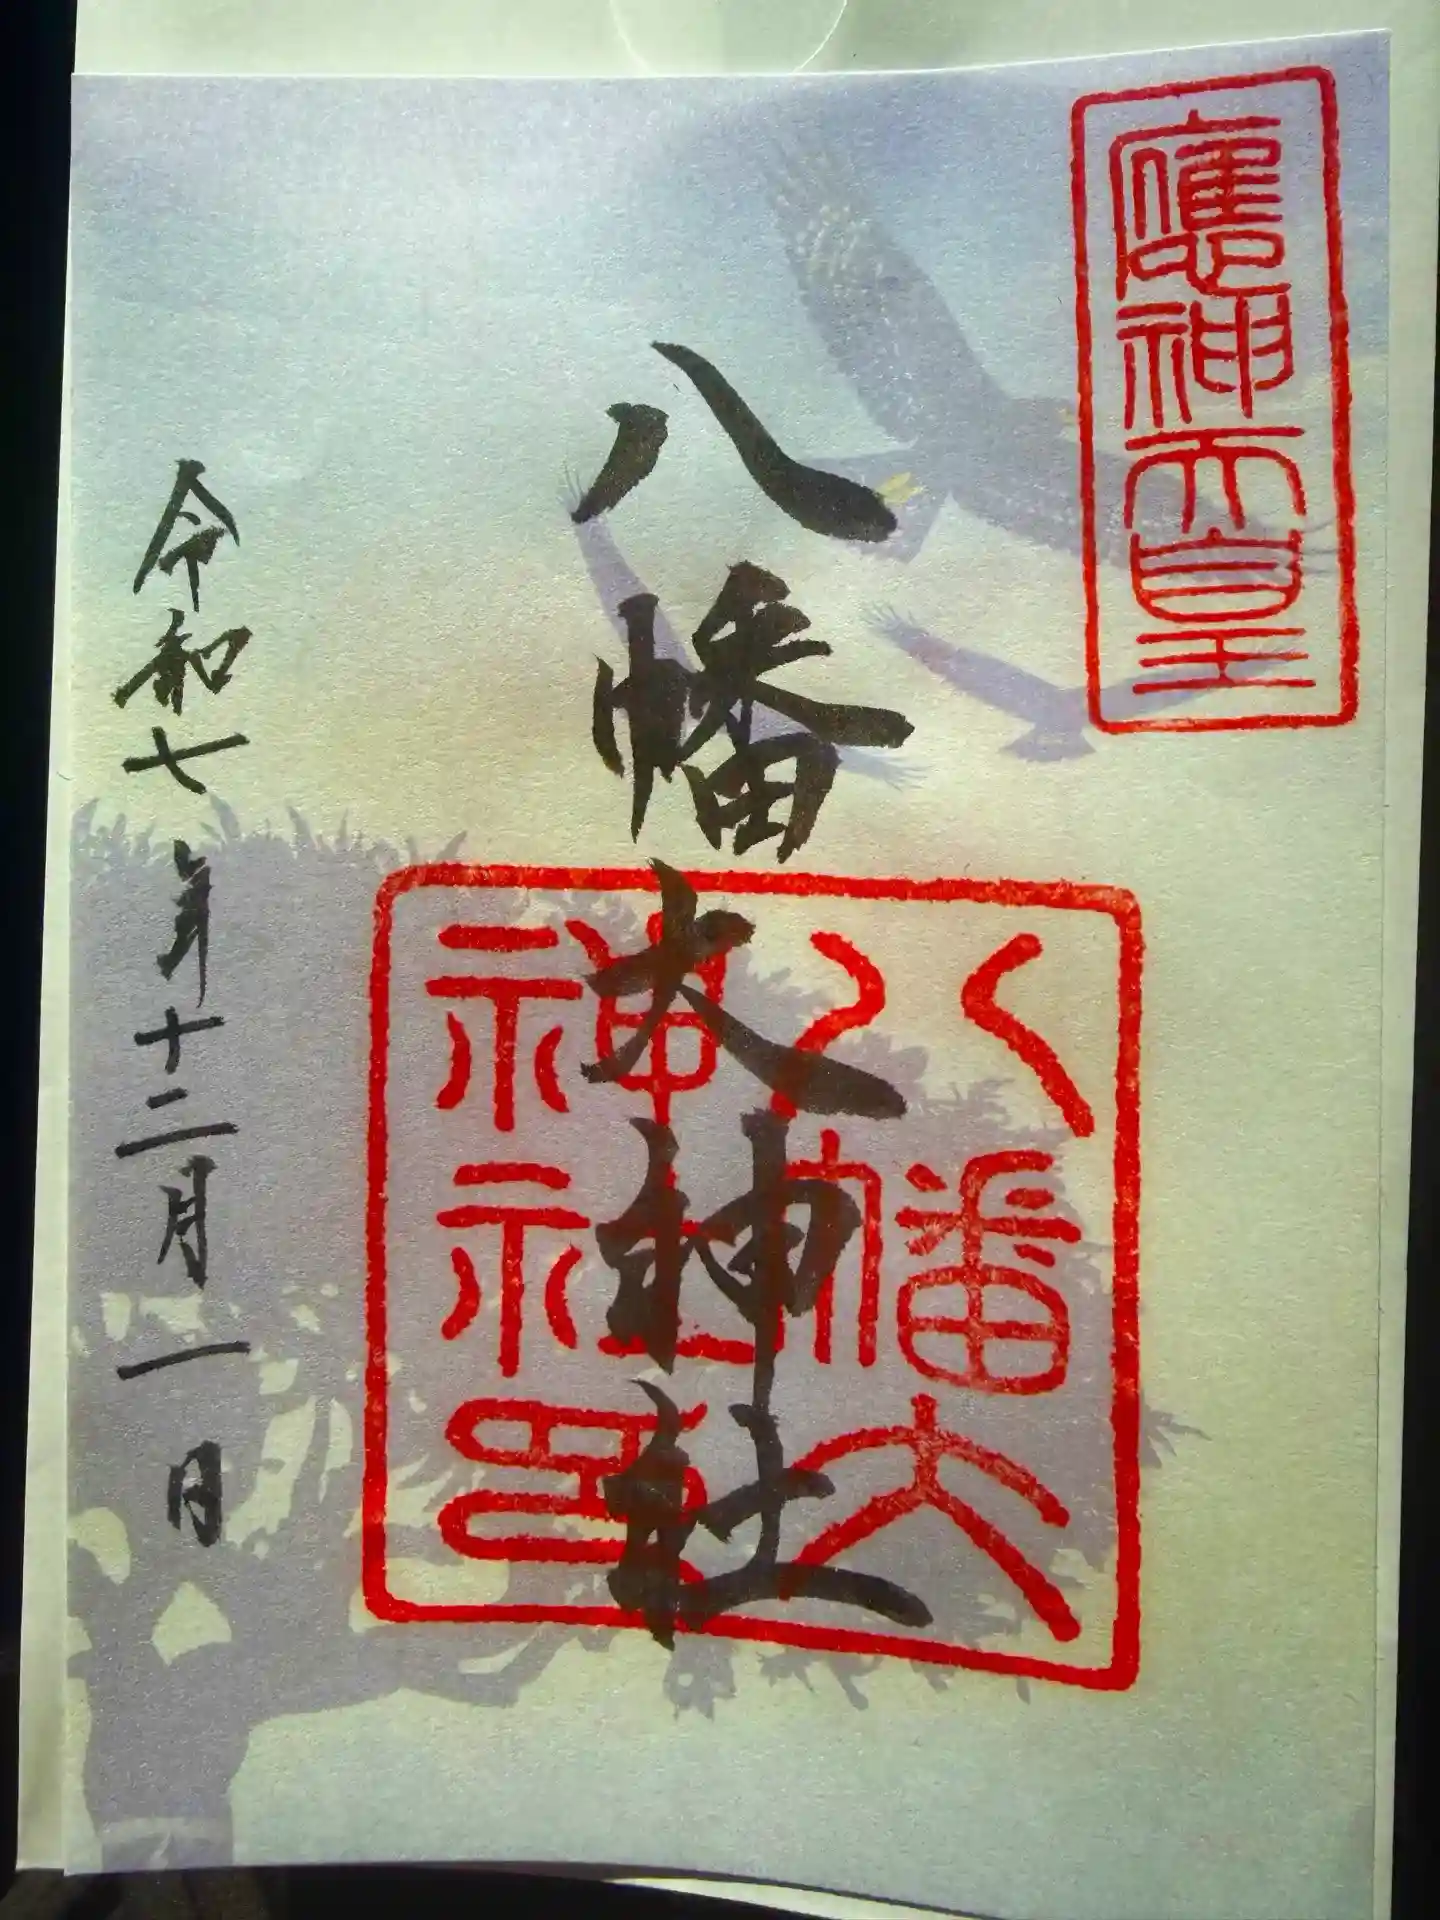 應神天皇
八幡大神社
八幡大
神社印
令和七年十二月一日